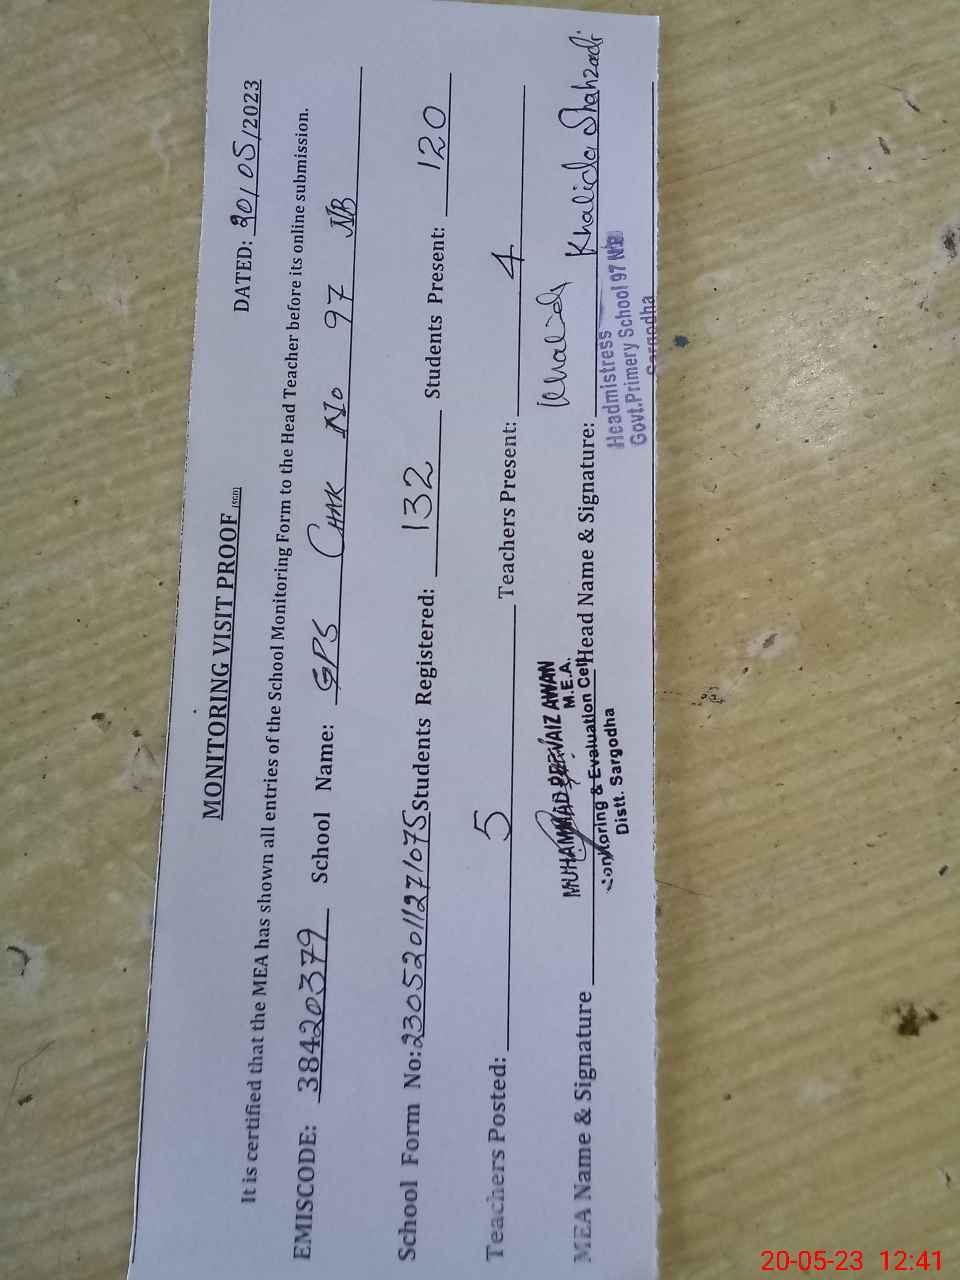 MONITORING VISIT PROOF
DATED: 20/05/2023
It is certified that the MEA has shown all entries of the School Monitoring Form to the Head Teacher before its online submission.
EMISCODE: 38420379 School Name: GPS CHAK No 97 NB
School Form No:23052011271075 Students Registered: 132 Students Present: 120
Teachers Posted: 5 Teachers Present: 4
MUHAMMAD PERVAIZ AWAN
M.E.A.
MEA Name & Signature Head Name & Signature: Khalida Shahzadi
Monitoring & Evaluation Cell
Distt. Sargodha
Headmistress
Govt.Primery School 97 NB
Sargodha
20-05-23 12:41